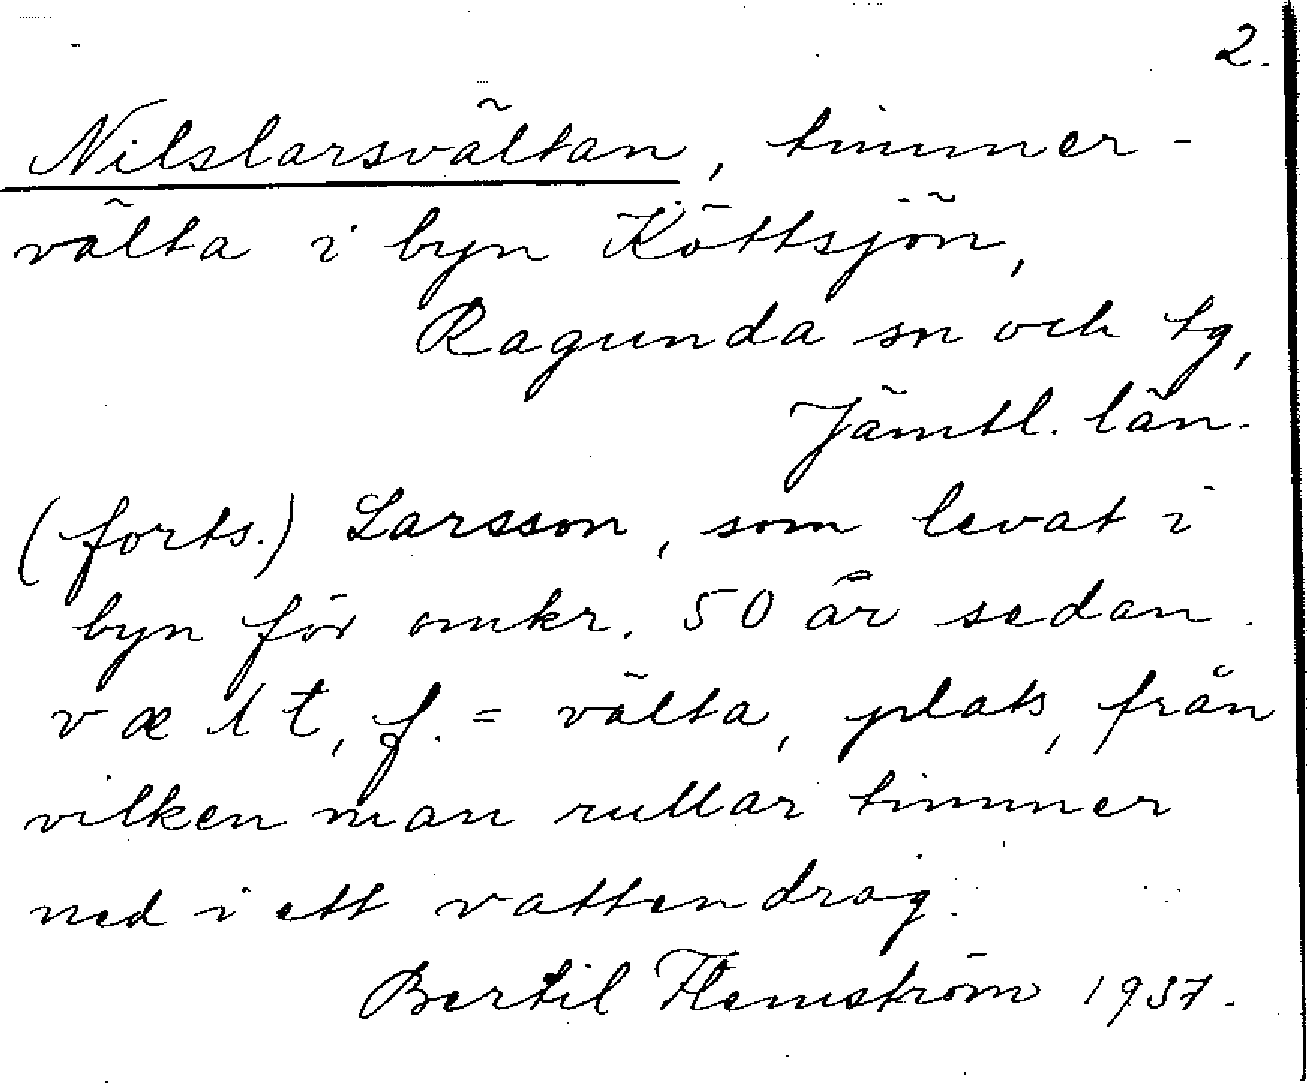 2.
Nilslarsvältan, timmer-
välta i byn Köttsjön,
Ragunda sn och tg,
Jämtl. län.
(forts.) Larsson, som levat i
byn för omkr. 50 år sedan.
vælt, f. = välta, plats, från
vilken man rullar timmer
ned i ett vattendrag.
Bertil Flemström 1937.